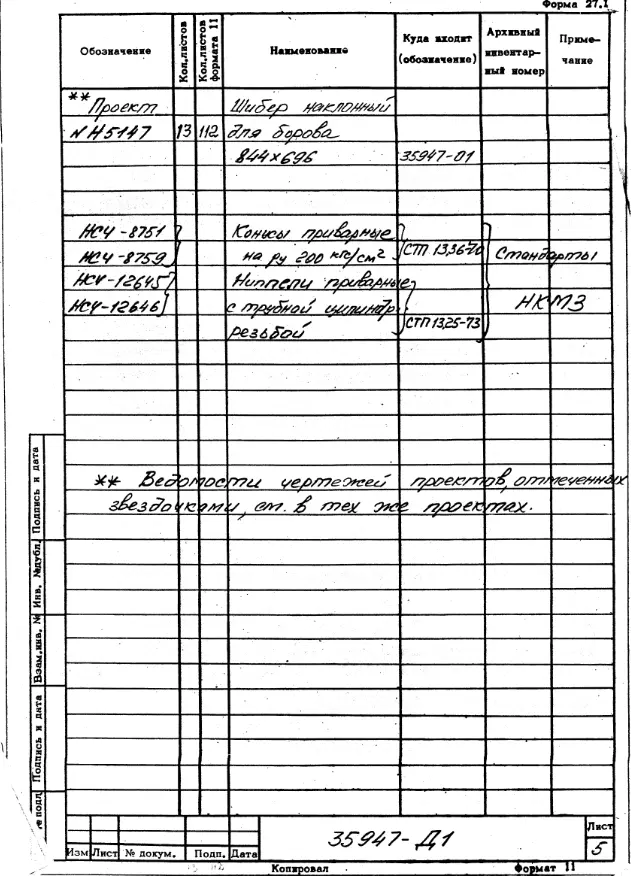 Форма 27.1
Обозначение Кол.листов Кол.листов формата 11 Наименование Куда входит (обозначение) Архивный инвентарный номер Примечание
** Проект Шибер наклонный
№ Н5147 13 112 для борова
844×696 35947-01
НСЧ-8751 Конусы приварные
НСЧ-8759 на ру 200 кгс/см² СТП 13.36-70 Стандарты
НСЧ-12645 Ниппели приварные
НСЧ-12646 с трубной цилиндр. НКМЗ
резьбой СТП 13.25-73
** Ведомости чертежей проектов, отмеченных
звездочками, см. в тех же проектах.
Подпись и дата
Инв. № дубл.
Взам.инв. №
Подпись и дата
№ подл.
35947-Д1
Лист
5
Изм Лист № докум. Подп. Дата
Копировал Формат 11